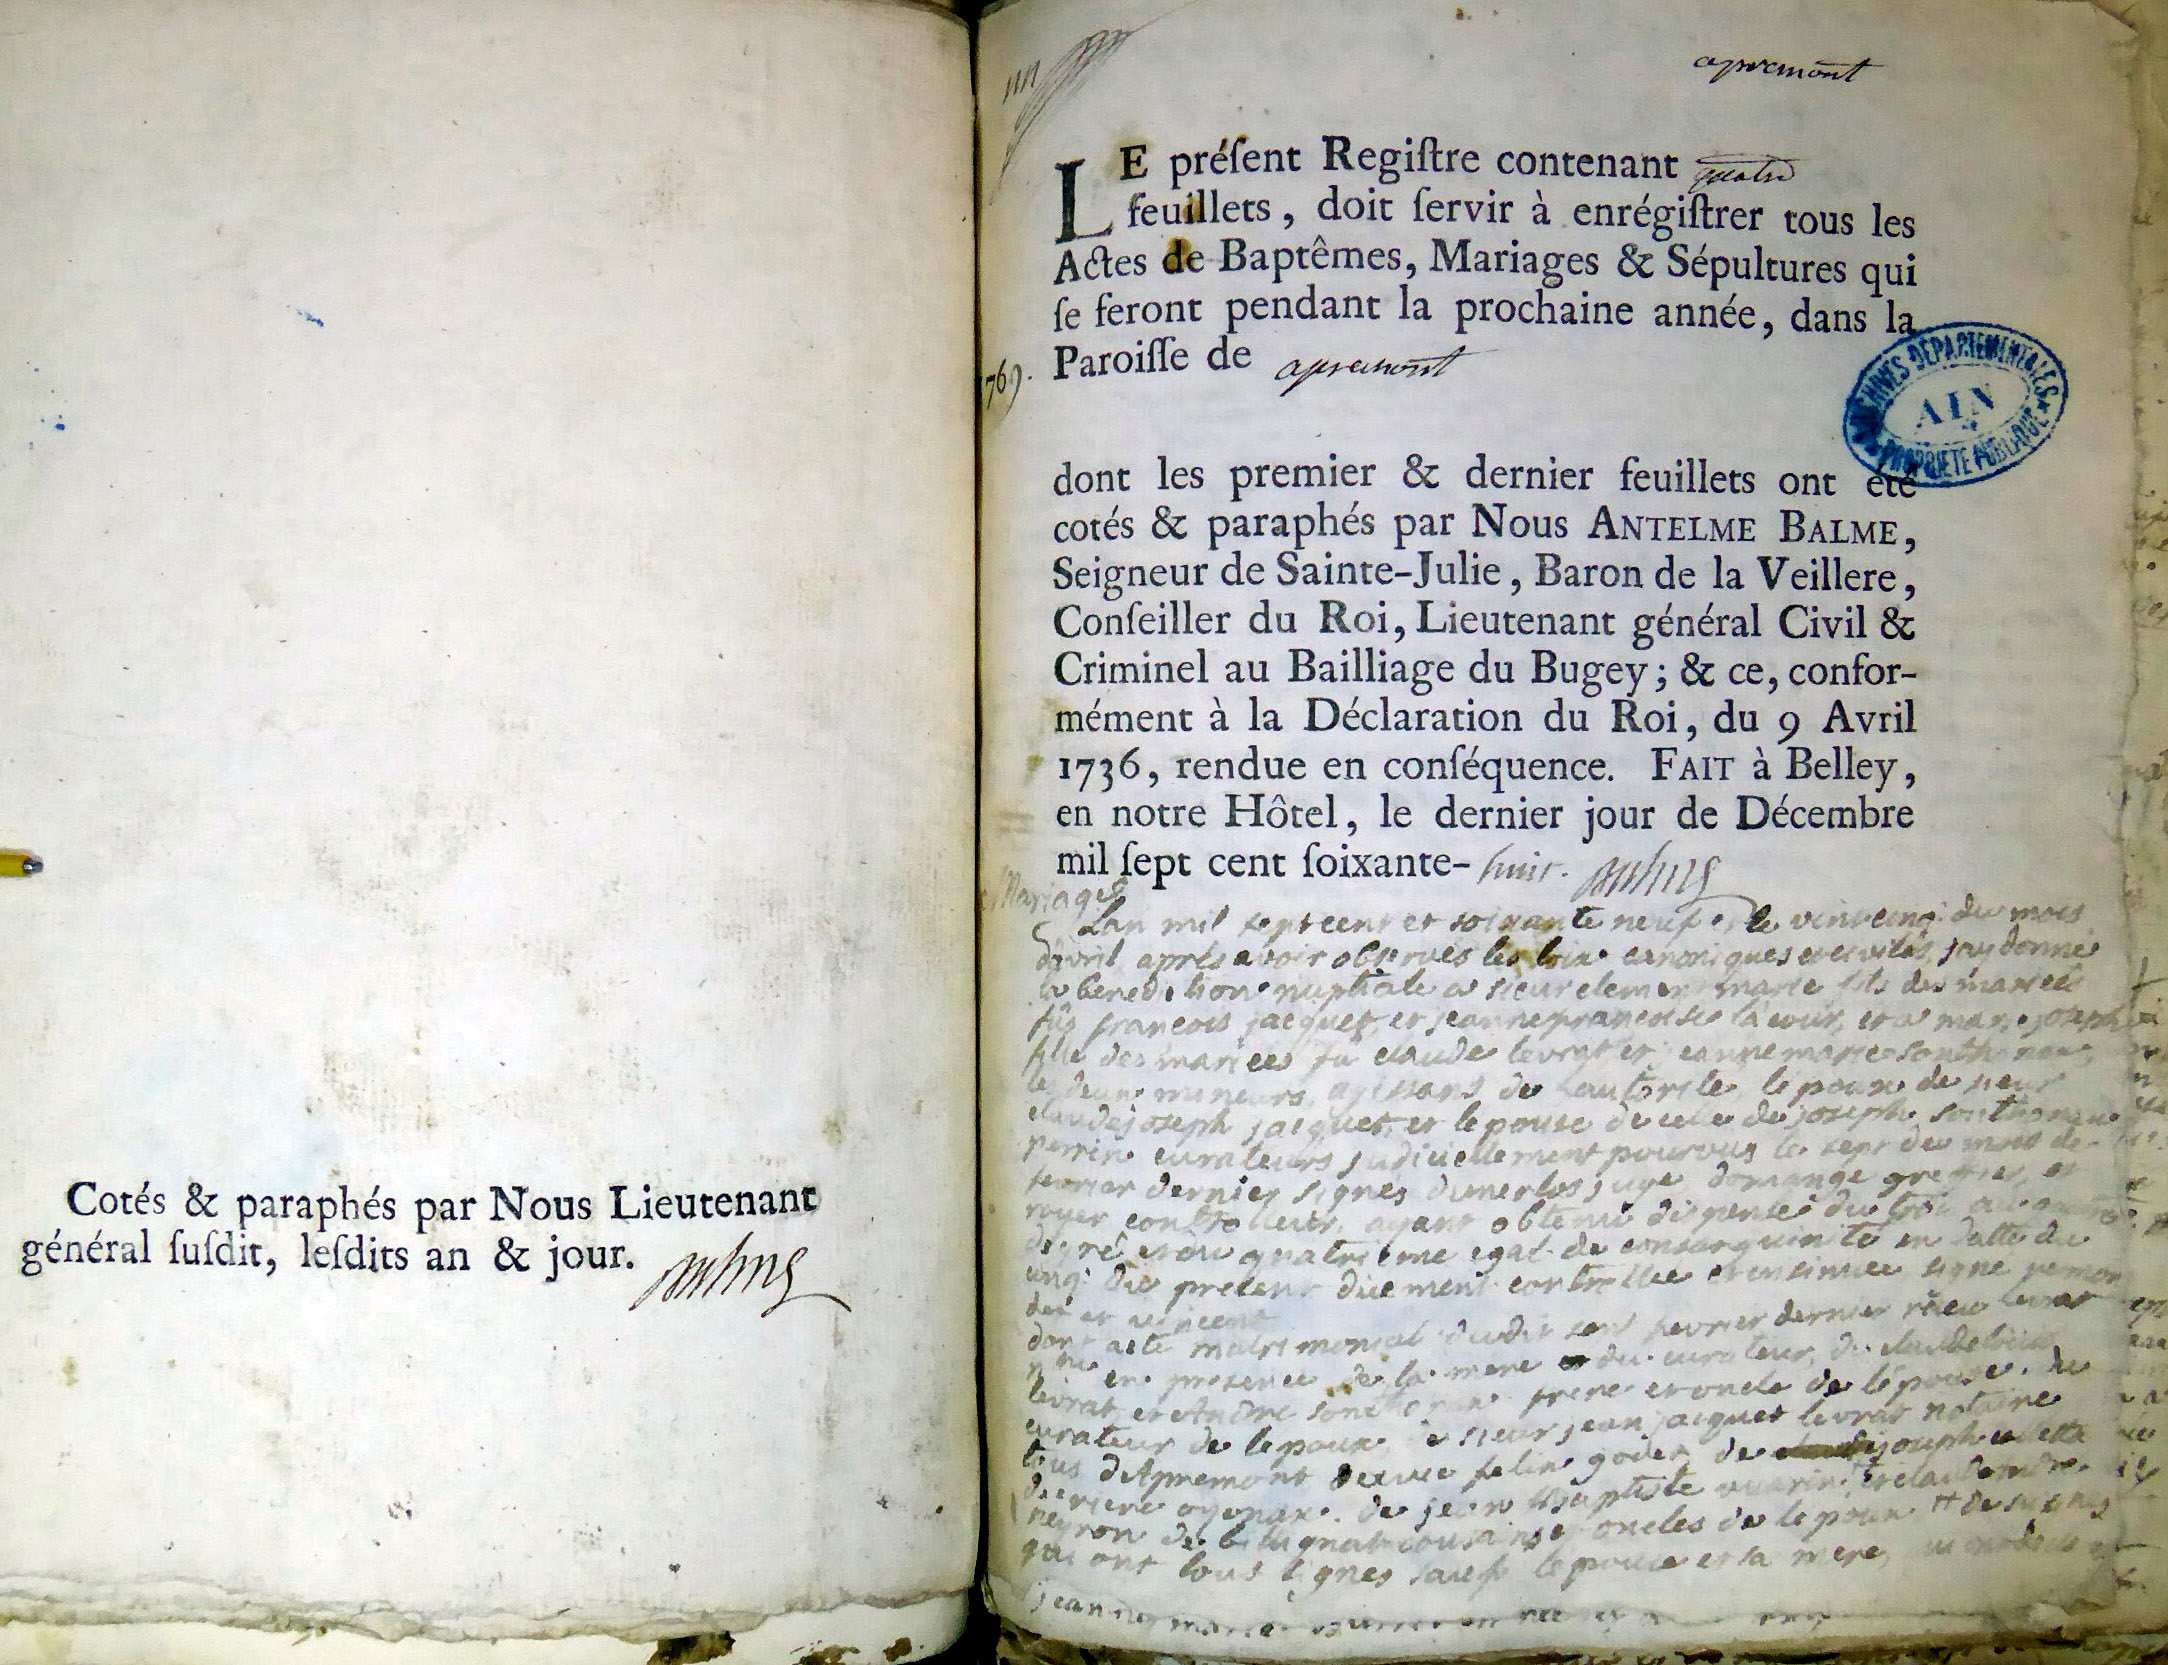 Cotés & paraphés par Nous Lieutenant
général ſuſdit, leſdits an & jour.
apremont
LE préſent Regiſtre contenant quatre
feuillets, doit ſervir à enrégiſtrer tous les
Actes de Baptêmes, Mariages & Sépultures qui
ſe feront pendant la prochaine année, dans la
Paroiſſe de apremont
769.
ARCHIVES DEPARTEMENTALES
AIN
PROPRIETE PUBLIQUE
dont les premier & dernier feuillets ont été
cotés & paraphés par Nous ANTELME BALME,
Seigneur de Sainte-Julie, Baron de la Veillere,
Conſeiller du Roi, Lieutenant général Civil &
Criminel au Bailliage du Bugey; & ce, confor-
mément à la Déclaration du Roi, du 9 Avril
1736, rendue en conſéquence. FAIT à Belley,
en notre Hôtel, le dernier jour de Décembre
mil ſept cent ſoixante-huit.
Mariages
Lan mil septcent et soixante neuf et le vintcinq du mois
davril après avoir observés les loix canoniques et civiles, jay donné
la benediction nuptiale a sieur clement marie fils des mariees
fû francois jacquet, et jeannefrancoise et a marie joseph
fille des mariees fu claude levrat et jeanne marie
les deux mineurs, agissans de lautorite, lepoux de sieur
claudejoseph jacquet, et lepouse de celle de joseph
perrin curateurs judiciellement pourvus le sept du mois de
fevrier dernier signes juge domange greffier, et
royer controlleur, ayant obtenu dispense du
degré et du quatrieme egal de consanguinité en datte du
cinq du present duement controllee et insinuee signe
et vincent
dont acte matrimonial dudit sept fevrier dernier reçu levrat
en presence de la mere du curateur, de claudelouis
levrat et André frere et oncle de lepouse, du
curateur de lepoux, de sieur jean jacquet levrat notaire
tous dApremont de joseph
oyonax. de jean Baptiste vuarin
de cousins et oncles de lepoux
qui ont tous signes sauf lepouse et sa mere
jeanne marie